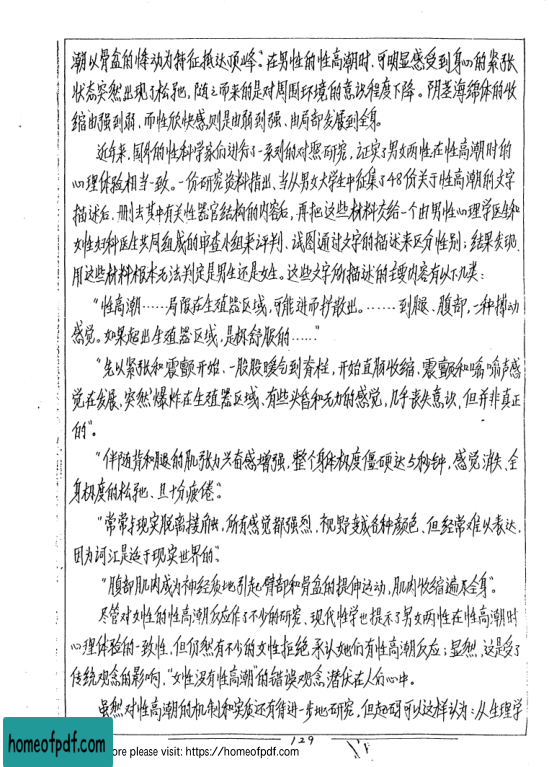 潮以骨盆的悸动为特征抵达顶峰。在男性的性高潮时，可明显感受到身心的紧张
状态突然出现了松弛，随之而来的是对周围环境的意识程度下降。阴茎海绵体的收
缩由强到弱，而性欣快感则是由弱到强、由局部发展到全身。
近年来，国外的性科学家们进行了一系列的对照研究，证实了男女两性在性高潮时的
心理体验相当一致。一份研究资料指出、当从男女大学生中征集了48份关于性高潮的文字
描述后，删去其中有关性器官结构的内容后，再把这些材料交给一个由男性心理学医生和
女性妇科医生共同组成的审查小组来评判、试图通过文字的描述来区分性别；结果发现，
用这些材料根本无法判定是男生还是女生。这些文字所描述的主要内容有以下几类：
“性高潮……局限在生殖器区域，可能进而扩散出。……到腿、腹部，一种搏动
感觉。如果超出生殖器区域，是极舒服的……”
“先以紧张和震颤开始、一股股暖气到脊柱，开始直肠收缩、震颤和嗡嗡声感
觉在发展、突然爆炸在生殖器区域、有些头昏和无力的感觉，几乎丧失意识，但并非真正
的”。
“伴随背和腿的肌张力兴奋感增强，整个身体极度僵硬达5秒钟，感觉消失、全
身极度的松弛、且十分疲倦。”
“常常与现实脱离接触，所有感觉都强烈、视野变成各种颜色、但经常难以表达，
因为词汇是适于现实世界的”。
“腹部肌肉成为神经质地引起臂部和骨盆的提伸运动，肌肉收缩遍及全身”。
尽管对女性的性高潮反应作了不少的研究、现代性学也揭示了男女两性在性高潮时
心理体验的一致性，但仍然有不少的女性拒绝承认她们有性高潮反应；显然，这是受了
传统观念的影响，“女性没有性高潮”的错误观念潜伏在人们心中。
虽然对性高潮的机制和实质还有待进一步地研究，但起码可以这样认为：从生理学
129
homeofpdf.com
ore please visit: https://homeofpdf.com